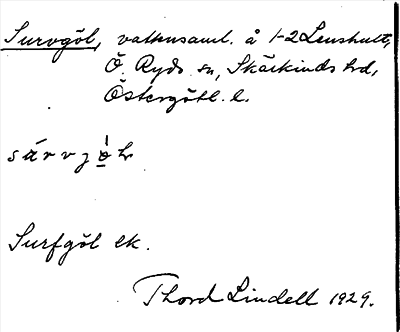 Survgöl, vattensaml. å 1-2 Lenshult,
Ö. Ryds sn, Skärkinds hd,
Östergötl. l.
Surfgöl ek.
Thord Lindell 1929.